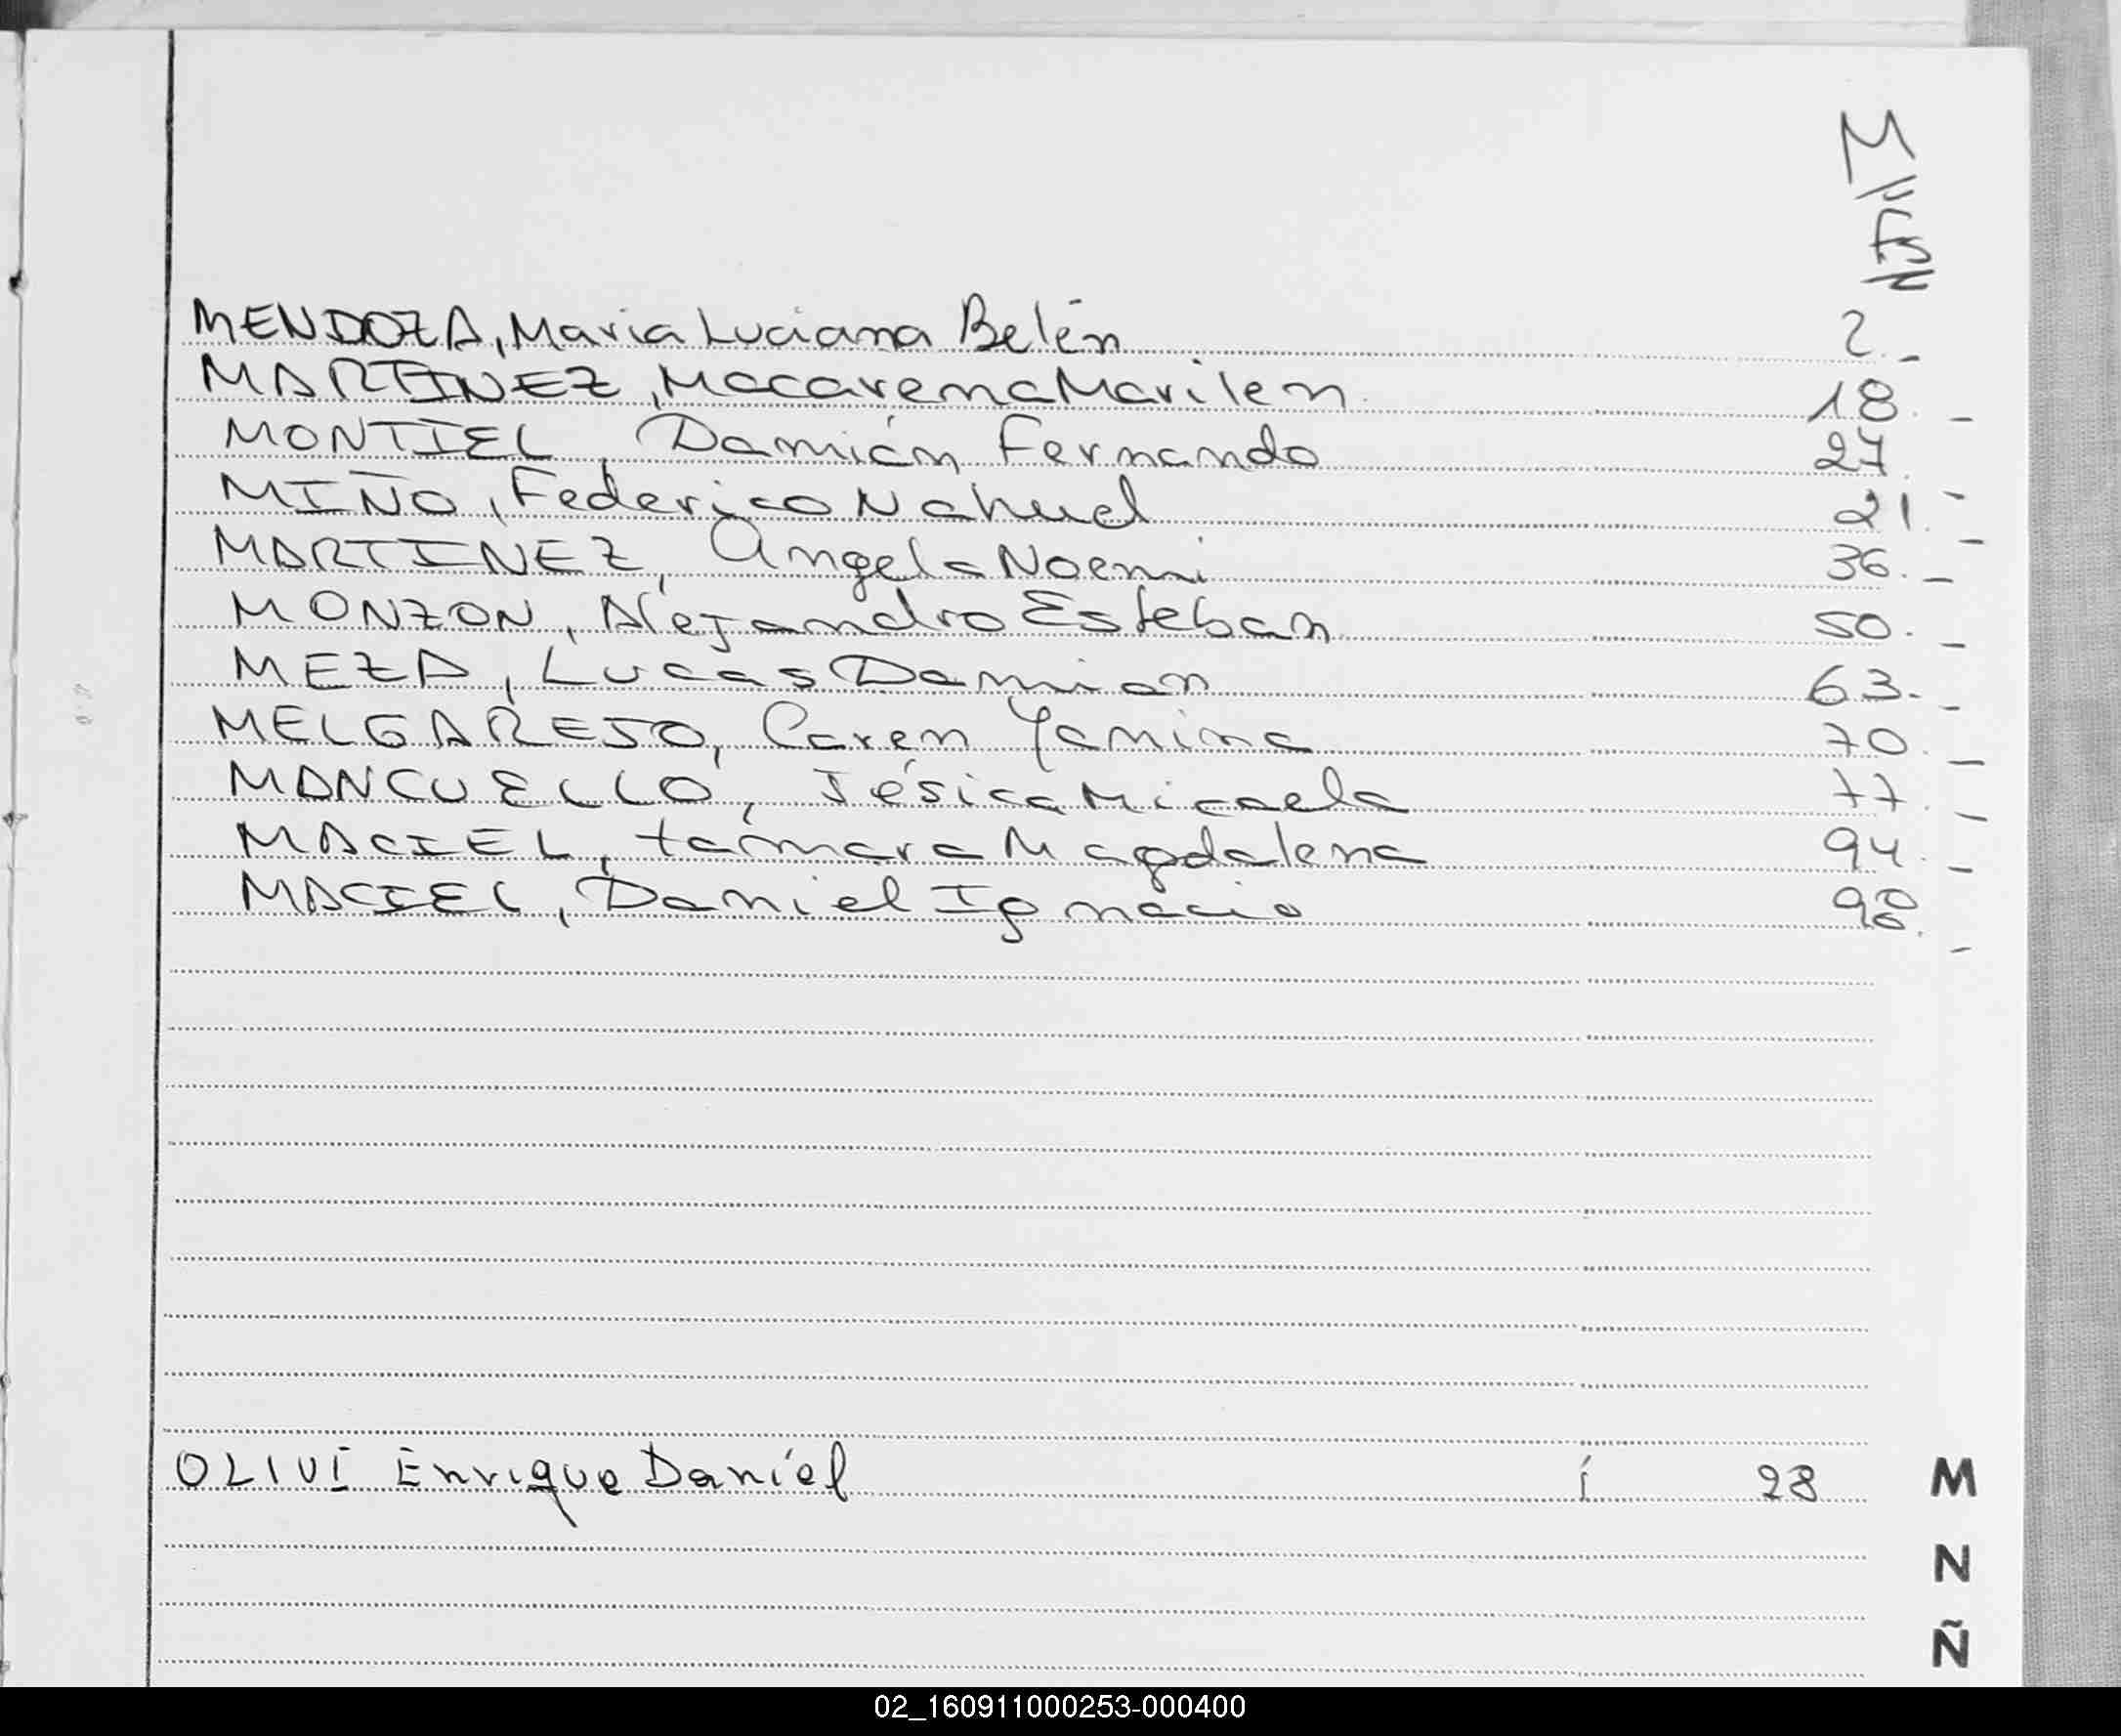 MENDOZA, Maria Luciana Belén 2.-
MARTINEZ, Macarena Marilen 18.-
MONTIEL, Damián Fernando 27.-
MIÑO, Federico Nahuel 21.-
MARTINEZ, Angela Noemi 36.-
MONZON, Alejandro Esteban 50.-
MEZA, Lucas Damian 63.-
MELGAREJO, Caren Yamina 70.-
MANCUELLO, Jésica Micaela 77.-
MACIEL, támara Magdalena 94.-
MACIEL, Daniel Ignacio 98.-
OLIVÍ Enrique Daniel i 28
M
N
Ñ
02_160911000253-000400